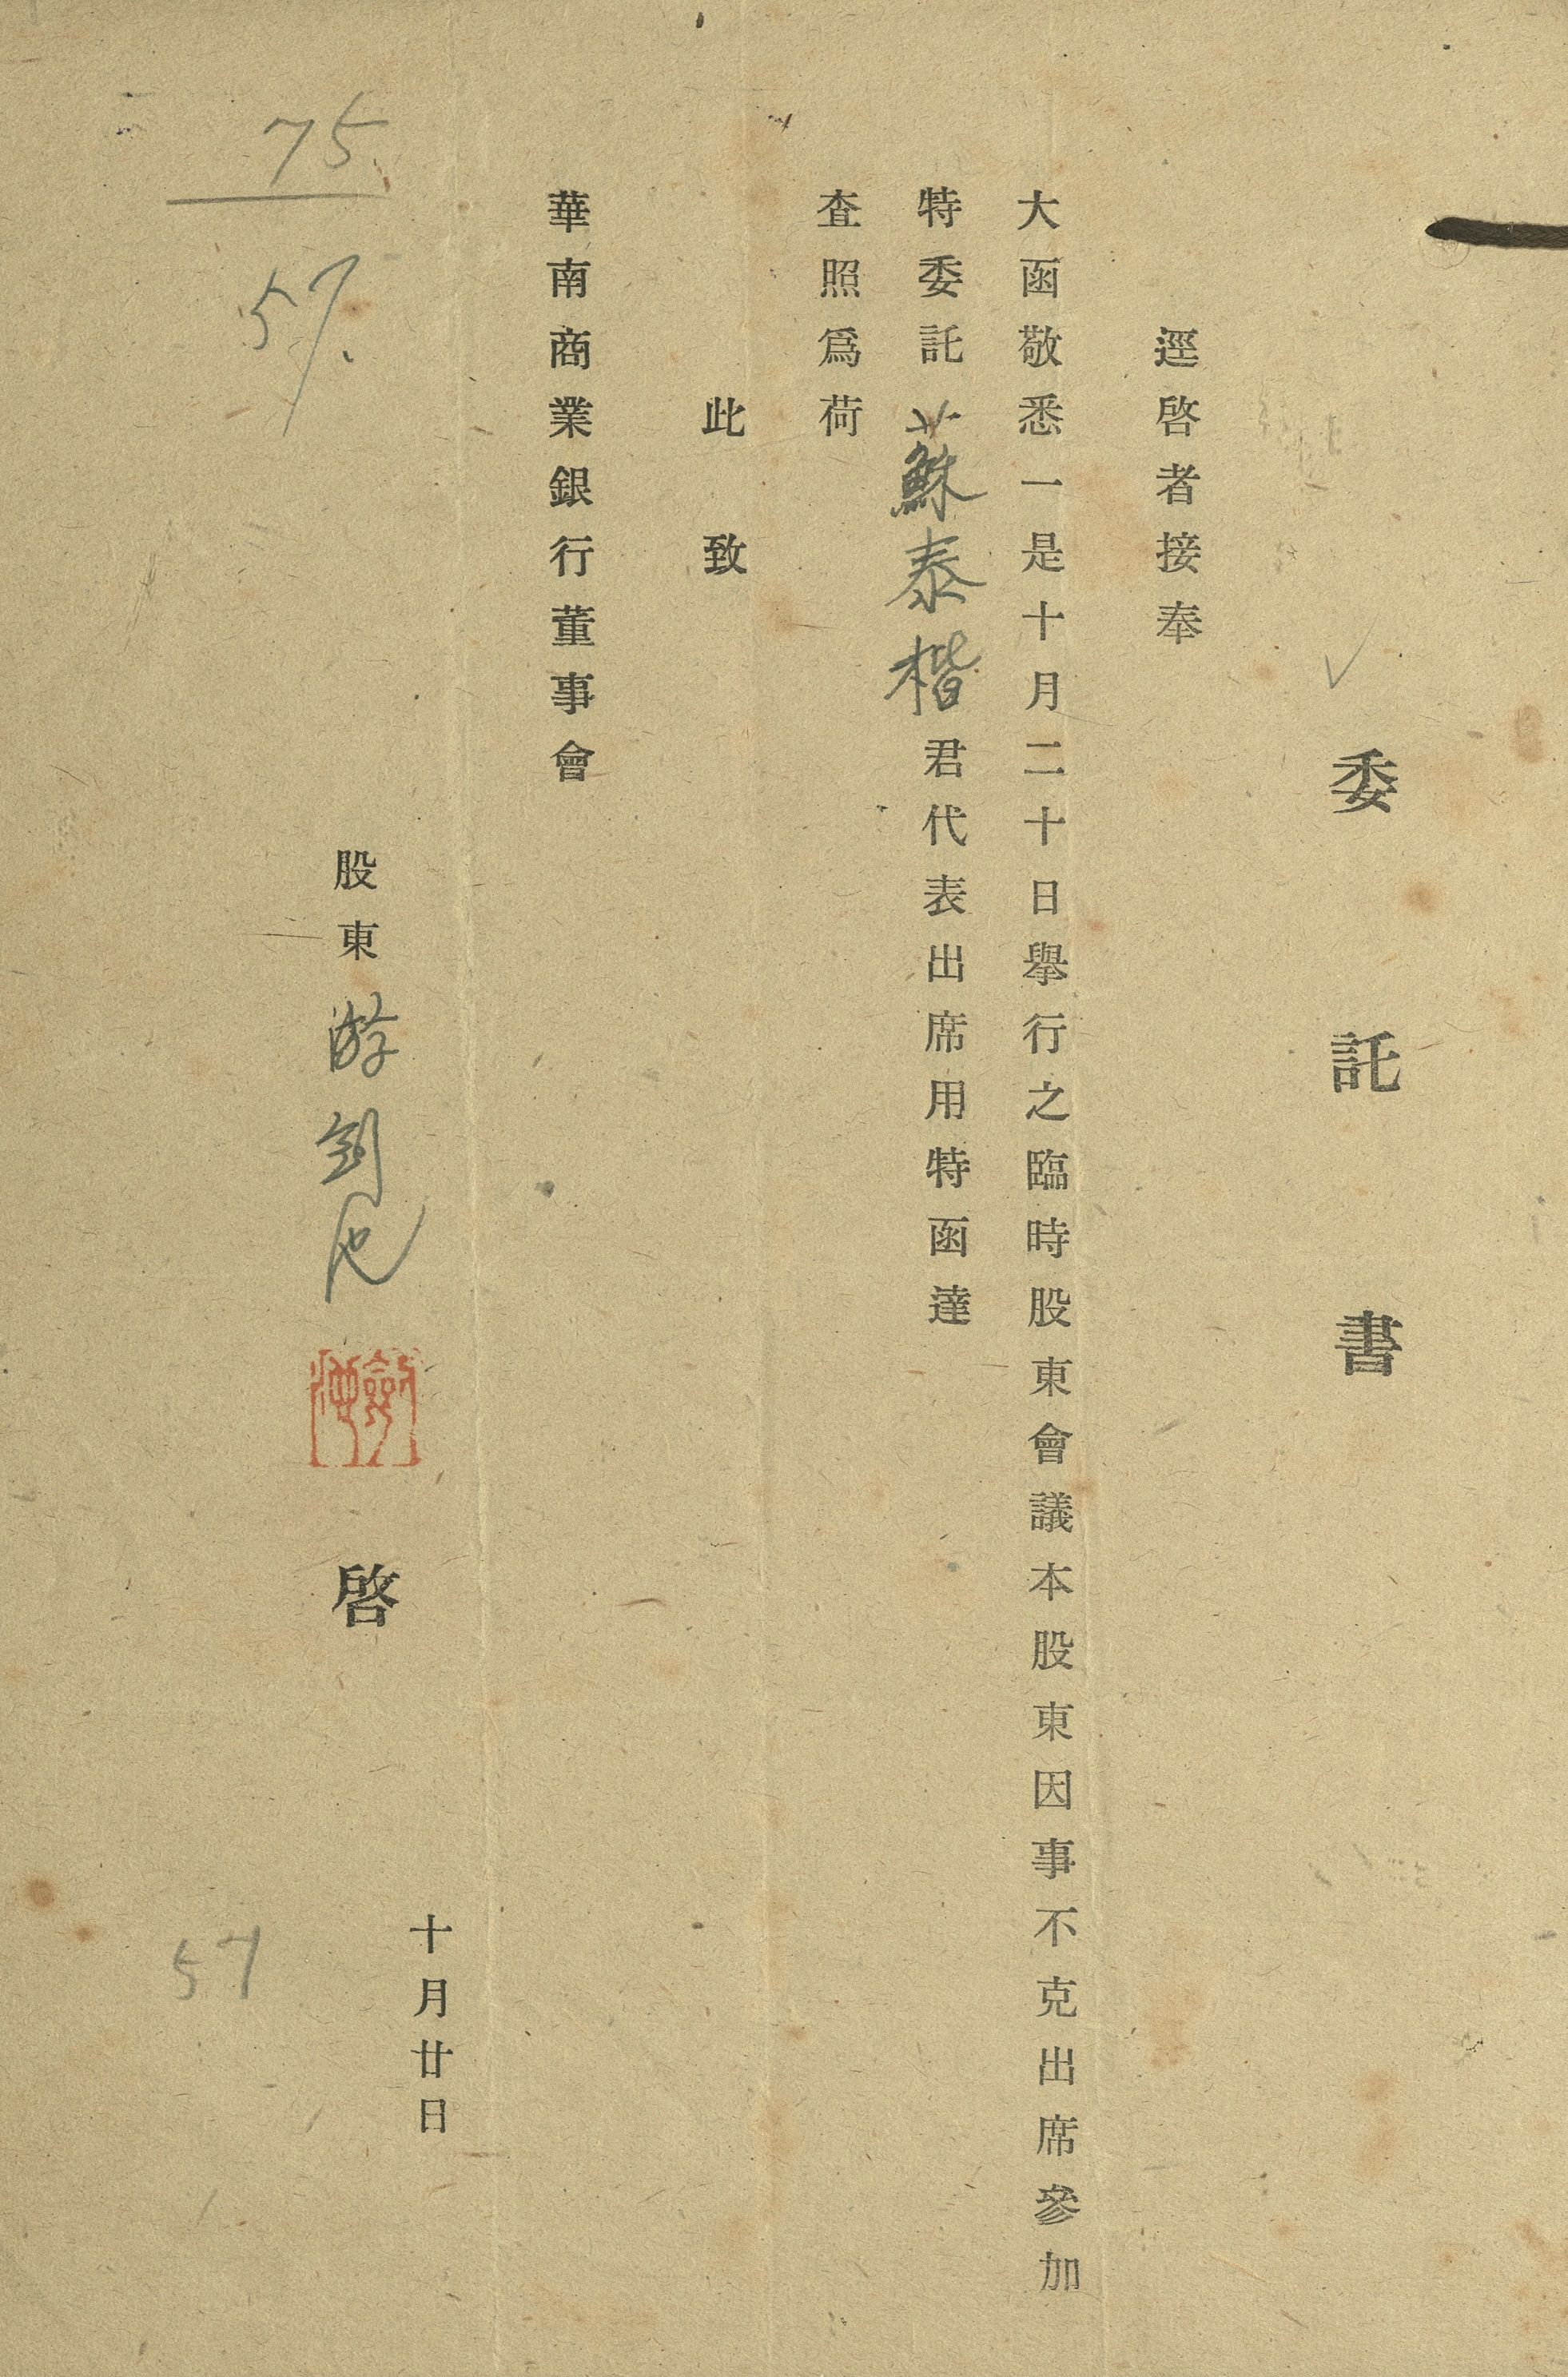 委託書
逕啓者接奉
大函敬悉一是十月二十日舉行之臨時股東會議本股東因事不克出席參加
特委託蘇泰楷君代表出席用特函達
査照爲荷
此致
華南商業銀行董事會
十月廿日
股東游劍池啓
75
57.
57